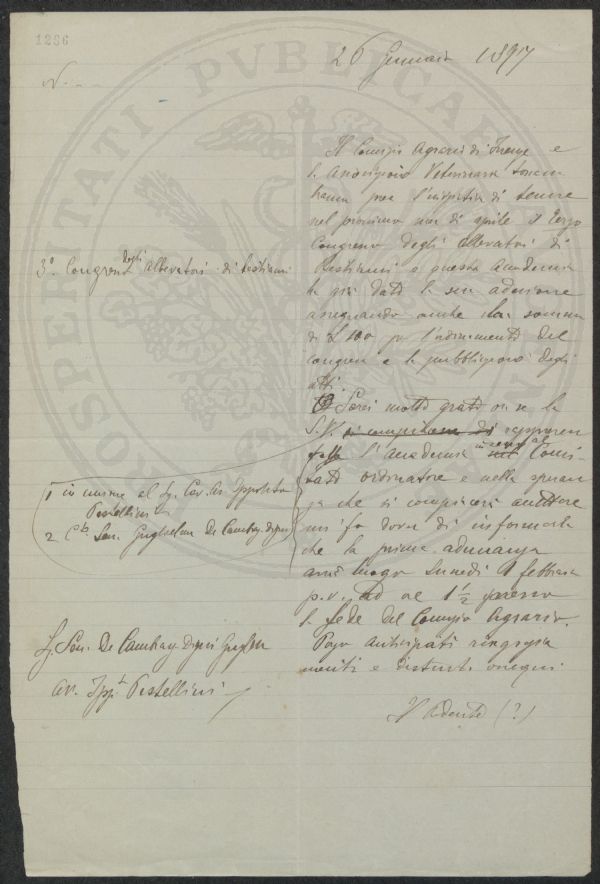 1286
26 Gennaio 1897
N. - -
PROSPERITATI PUBLICAE
3°. Congresso degli allevatori di bestiami
Il Comizio Agrario di Firenze e
la Veterinaria
hanno preso l'iniziativa di tenere
nel prossimo mese di aprile il terzo
Congresso degli allevatori di
Bestiami e questa Accademia
ha già dato la sua adesione
assegnando anche una somma
di L 100 per l'ordinamento del
congresso e la pubblicazione degli
atti.
Sarei molto grato ove se la
S.V. si compiacesse di rappresen
l'Accademia in seno al Comi-
tato ordinatore e nella speran
za che si compiacerà accettare
mi fo dovere di informarla
che la prima adunanza
avrà luogo Lunedì 1 febbraio
p.v. ad ore 1½ presso
la sede del Comizio Agrario.
Pongo anticipati ringrazia
menti e distinti ossequi.
Il Presidente (?)
1 in unione al Sig. Cav. Av. Ippolito
Pestellini
2 Sen. Guglielmo De Cambray-Digny
Sen. De Cambray-Digny Guglielmo
Av. Ipp. Pestellini